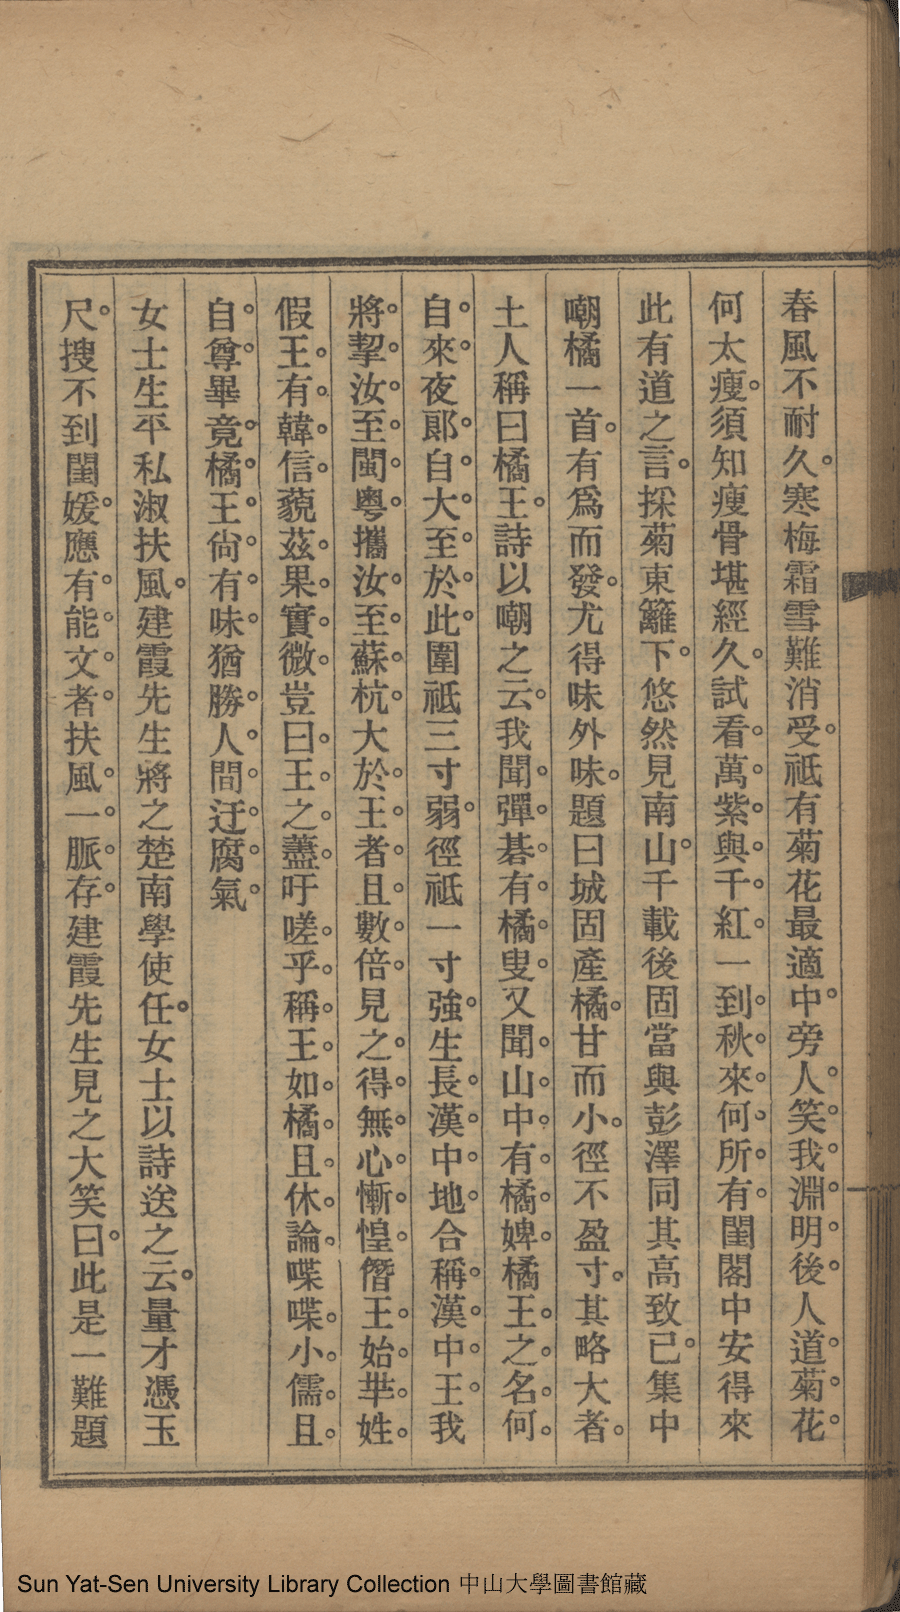 春風不耐久。寒梅霜雪難消受。祗有菊花最適中。旁人。笑。我。淵。明。後。人道。菊。花。
何太瘦。須知瘦骨堪經久。試看。萬。紫。與。千。紅。一到。秋。來。何。所。有。閨閣中安得來
此有道之言。採菊東籬下。悠然見南山。千載後固當與彭澤同其高致。已集中
嘲橘一首。有爲而發。尤得味外味。題曰城固產橘。甘而小。徑不盈寸。其略大者。
土人稱曰橘王。詩以嘲之云。我聞。彈。碁。有。橘。叟。又聞。山。中。有。橘。婢。橘王。之。名。何。
自。來。夜郞。自。大。至。於。此。圍祗三寸弱。徑祗一寸強。生長。漢。中。地。合稱。漢。中。王。我
將。挈。汝。至。閩。粵。攜汝。至。蘇。杭。大於。王。者。且。數。倍。見之。得。無。心。慚。惶。僭王。始。芈。姓。
假王。有。韓。信。藐茲。果。實。微。豈曰。王。之。藎。吁嗟。乎。稱。王。如。橘。且。休。論。喋喋。小。儒。且。
自。尊。畢竟。橘。王。尙。有。味。猶勝。人。間。迂。腐。氣。
女士生平私淑扶風。建霞先生將之楚南學使任。女士以詩送之云。量才憑玉
尺。搜不到閨媛。應有。能。文。者。扶風。一。脈。存。建霞先生見之大笑曰。此是一難題